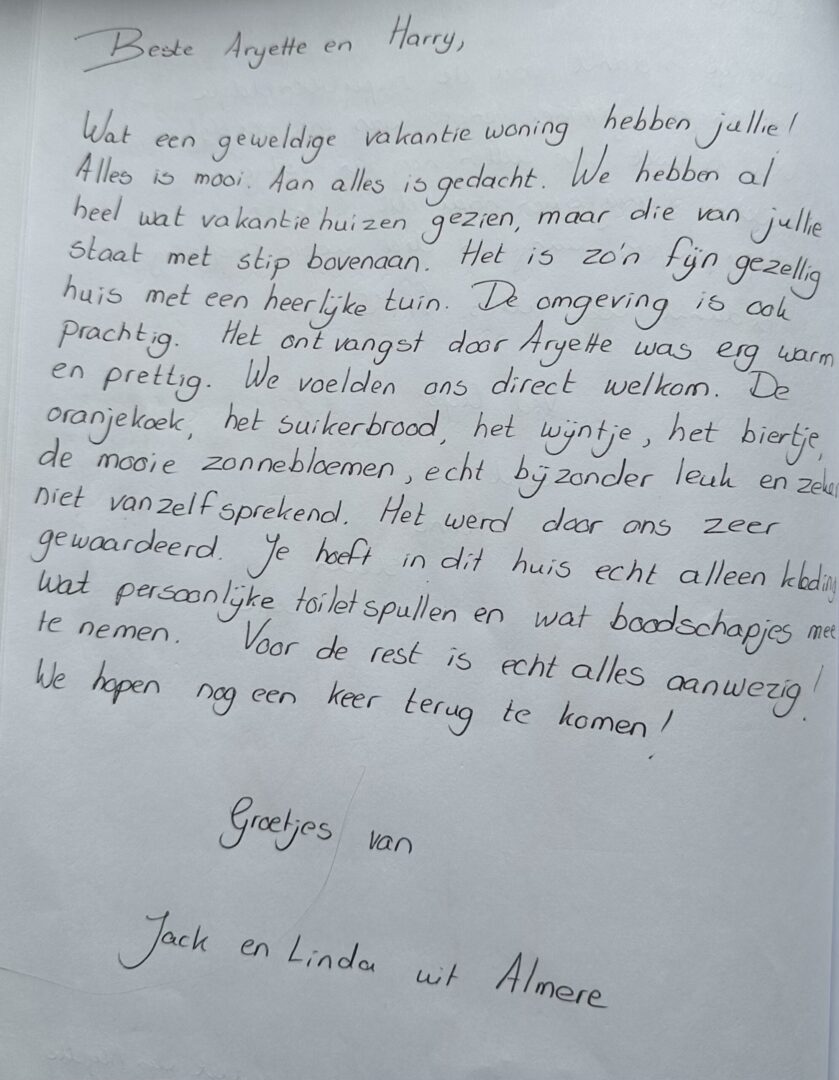 Beste Aryette en Harry,
Wat een geweldige vakantie woning hebben jullie!
Alles is mooi. Aan alles is gedacht. We hebben al
heel wat vakantie huizen gezien, maar die van jullie
staat met stip bovenaan. Het is zo'n fijn gezellig
huis met een heerlijke tuin. De omgeving is ook
prachtig. Het ontvangst door Aryette was erg warm
en prettig. We voelden ons direct welkom. De
oranjekoek, het suikerbrood, het wijntje, het biertje,
de mooie zonnebloemen, echt bijzonder leuk en zeker
niet vanzelfsprekend. Het werd door ons zeer
gewaardeerd. Je hoeft in dit huis echt alleen kleding
wat persoonlijke toiletspullen en wat boodschapjes mee
te nemen. Voor de rest is echt alles aanwezig!
We hopen nog een keer terug te komen!
Groetjes van
Jack en Linda uit Almere